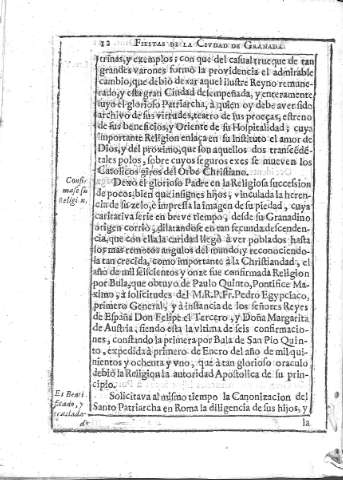 12 FIESTAS DE LA CIUDAD DE GRANADA
trinas, y exemplos: con que del casual trueque de tan
grandes varones formò la providencia el admirable
cambio, que debiò dexar aquel ilustre Reyno remune-
rado, y esta gran Ciudad desempeñada, y enteramente
suyo el glorioso Patriarcha, à quien oy debe aver sido
archivo de sus virtudes, teatro de sus proeças, estreno
de sus beneficios, y Oriente de su Hospitalidad; cuya
importante Religion enlaça en su Instituto el amor de
Dios, y del proximo, que son aquellos dos transcēdē-
tales polos, sobre cuyos seguros exes se mueven los
Catolicos giros del Orbe Christiano.
Confir
mase su
Religiõ.
Dexò el glorioso Padre en la Religiosa succession
de pocos; bien que insignes hijos, vinculada la heren-
cia de su zelo, è impressa la imagen de su piedad, cuya
caritativa serie en breve tiempo, desde su Granadino
origen corriò, dilatandose en tan secunda descenden-
cia, que con ella la caridad llegò à ver poblados hasta
los mas remotos angulos del mundo, y reconociendo-
la tan crecida, como importante à la Christiandad, el
año de mil seiscientos y onze fue confirmada Religion
por Bula, que obtuvo de Paulo Quinto, Pontifice Ma-
ximo, à solicitudes del M.R.P. Fr. Pedro Egypciaco,
primero General, y à instancia de los señores Reyes
de España Don Felipe el Tercero, y Doña Margarita
de Austria, siendo esta la vltima de seis confirmacio-
nes, constando la primera por Bula de San Pio Quin-
to, expedida à primero de Enero del año de mil qui-
nientos y ochenta y vno, que à tan glorioso oraculo
debiò la Religion la autoridad Apostolica de su prin-
cipio.
Es Beati
ficado, y
trasladado
Solicitava al mismo tiempo la Canonizacion del
Santo Patriarcha en Roma la diligencia de sus hijos, y
la